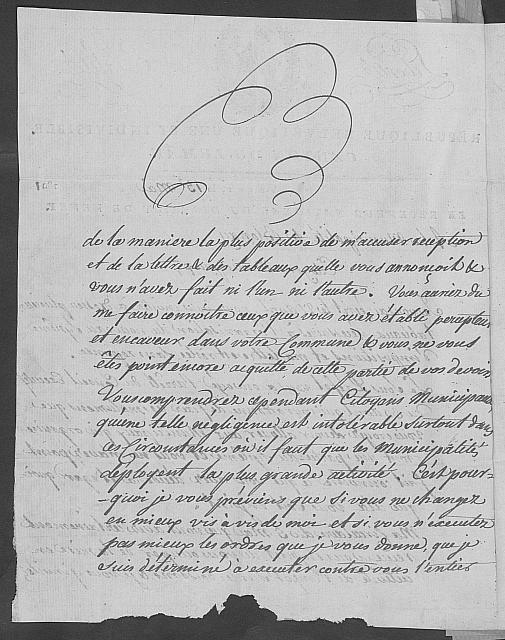 de la maniere la plus positive de m'accuser reception
et de la lettre & des tableaux qu'elle vous annonçoit &
vous n'avez fait ni l'un ni l'autre. Vous auriez du
me faire connoitre ceux que vous avez établi percepteur
et encaveur dans votre Commune & vous ne vous
êtes point encore acquitté de cette partie de vos devoirs
Vous comprendrez cependant Citoyens Municipaux
qu'une telle negligence est intolérable surtout dans
ces Circonstances où il faut que les Municipalités
déployent la plus grande activité. C'est pour-
-quoi je vous préviens que si vous ne changez
en mieux vis à vis de moi et si vous n'executez
pas mieux les ordres que je vous donne, que je
suis déterminé a executer contre vous l'entier